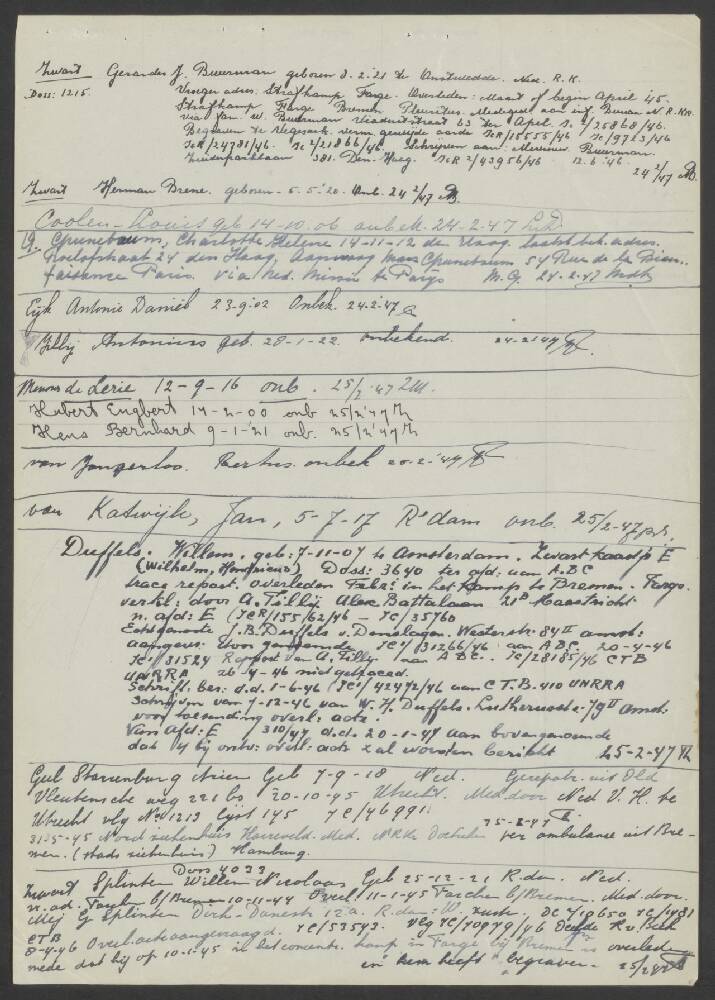 Zwart Gerardus J. Buurman geboren 8.2.21 te Onstwedde. Ned. R.K.
Doss: 1215. Vroeger adres: Strafkamp Farge. Overleden: Maart of begin April 45.
Strafkamp Farge Bremen Pleuritus. Medegeve aan inf. Bureau N.R.K.
via Jan W. Buurman Viaductstraat 63 Ter Apel. 2/25868/46.
Begraven te Vegesack. verm. gewijde aarde JcR/15555/46 Jc/9723/46
JcR/24731/46. Jc 2/21866/46. Schrijven aan: Mevrouw Buurman.
Zuiderparklaan 381. Den Haag. JcR 2/43956/46 12.6.46.
24 2/47
Zwart Herman Breme. geboren 5.5.20. Onb. 24 2/47
Coolen - Louis geb 14-10.06 onbek. 24-2-47
Grunebaum, Charlotte Helene 14-11-12 den Haag. laatst bek. adres.
Roelofstraat 24 den Haag, Aanvraag Max Grunebaum 54 Rue de la Bien-
faisance Paris. via Ned. Missie te Parijs M.G. 24-2-47
Eyk Antonie Daniël 23-9-02 Onbek. 24-2-47
Antonius geb. 28-1-22. onbekend. 24-2-47
de Lerie 12-9-16 onb. 25/2-47
Hubert Engbert 14-2-00 onb 25/2'47
Hens Bernhard 9-1-'21 onb. 25/2'47
van Jongerloo. Bertus. onbek
van Katwijk, Jan, 5-7-17 R'dam onb. 25/2-47
Duffels. Willem. geb: 7-11-07 te Amsterdam. Zwart kaartje E
(Wilhelm, Henricus) Doss: 3640 ter afd: van A.B.C
trace report. overleden Febr: in het Kamp te Bremen. Fargo.
verkl: door A. Tillij Alex Battalaan 21B Maastricht.
n. afd: E (JcR/155/62/46 - JC/35760
Echtgenoote J.B. Duffels v. Denslagen. Westerstr. 84 II Amst:
aangev: door genoemde JC/31266/46 aan A.B.C. 20-4-46
JC/31524 Rapport van A. Tillij aan A B C. Jc/28185/46 CTB
UNRRA 26-4-46 niet getraced.
Schrift. ber. d.d. 1-6-46 JC/42472/46 aan C.T.B. 410 UNRRA
Schrijven van 7-12-46 van W.H. Duffels. Lutherusstr. 79 II Amst:
voor toezending overl: acte.
Van Afd: E 310/47 d.d. 20-1-47 aan bovengenoemde
dat hij bij ontv: overl: acte zal worden bericht 25-2-47
Gul Starrenburg Arien Geb 7-9-18 Ned. Gerepatr. uit Dld
Vleutensche weg 221 bs 20-10-45 Utrecht. Med. door Ned V.H. te
Utrecht vlg No 1213 lijst 145 7c/46991. 25-2-47
31-5-45 Noord ziekenhuis Med. NRK Dochelen per ambulance uit Bre-
men. (Stads ziekenhuis) Hamburg.
Doss 4033
Zwart Splinter Willem Nicolaas Geb 25-12-21 R.dam. Ned.
n. ad. Farge b/Bremen 10-11-44 Overl. 11-1-45 Farche b/Bremen. Med. door.
Mej G Splinter Dirk-Danestr 12a. R.dam. W. zuster. DC/19650 JC/1481
CTB 7C/53543. vlg 7C/70979/46 Deelde H. v Beek
8-4-46 Overl. acte aangevraagd.
mede dat hij op 10-1-45 in het concentr. kamp in Farge bij Bremen is overleden
en "hem heeft" begraven. 25/2'47